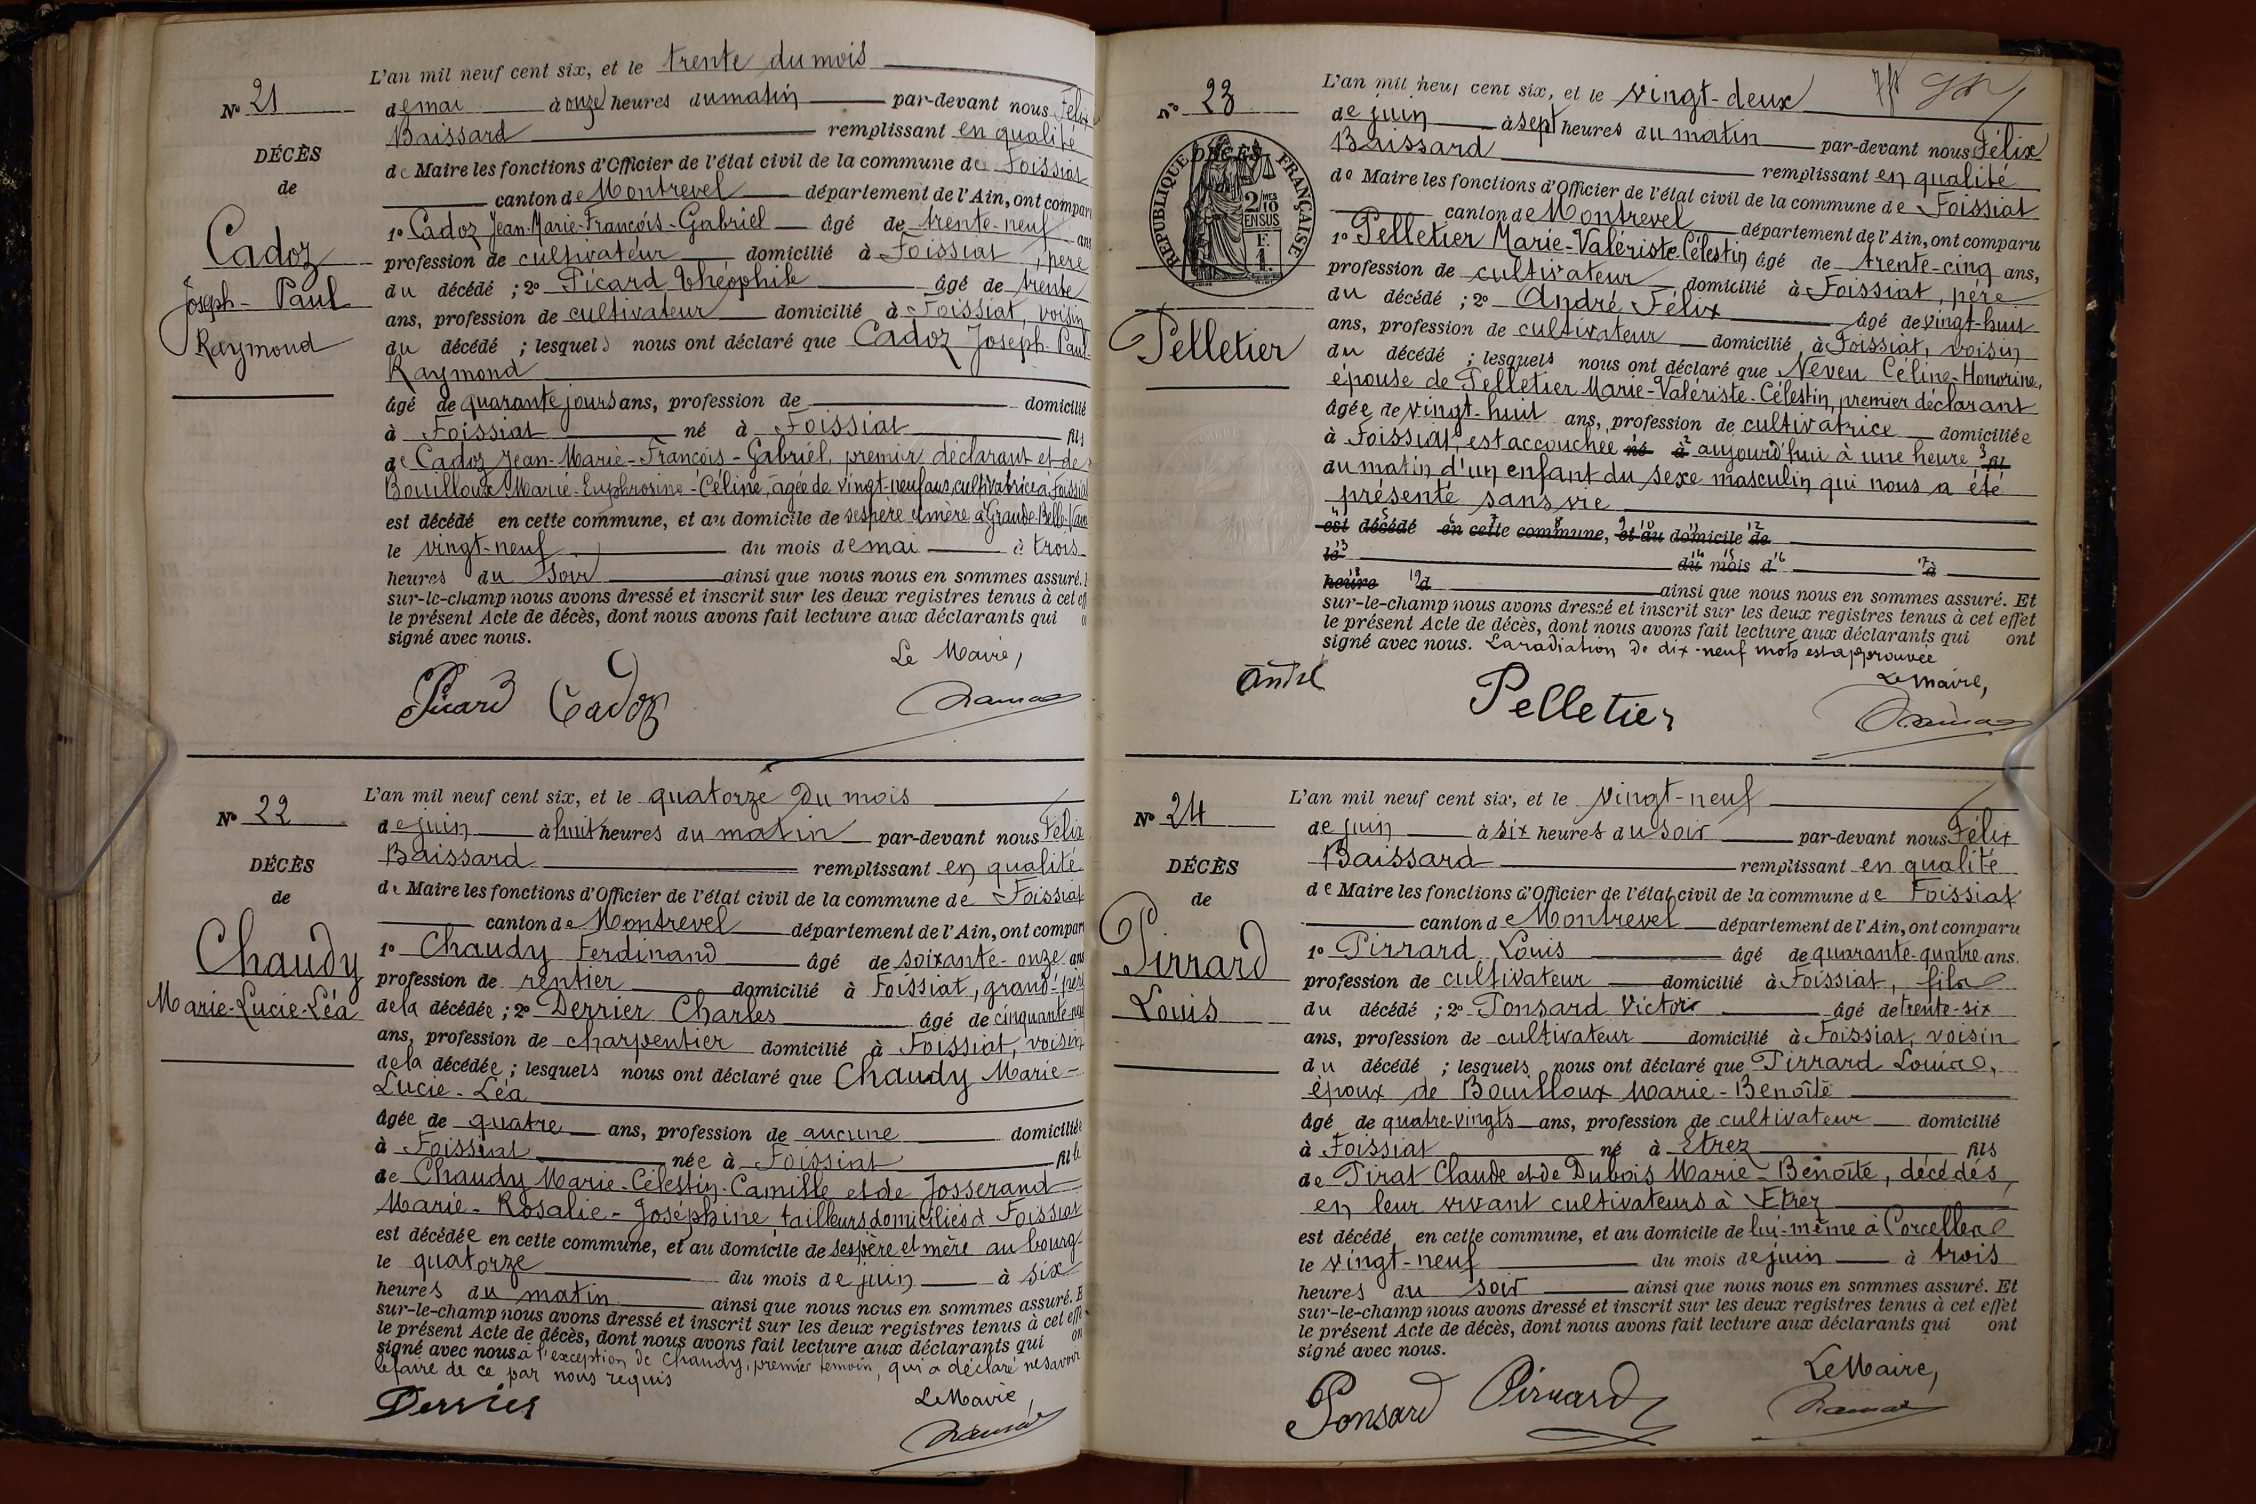 N° 21
DÉCÈS
de
Cadoz
Joseph-Paul
Raymond
L'an mil neuf cent six, et le trente du mois
de mai à onze heures du matin par-devant nous Félix
Baissard remplissant en qualité
de Maire les fonctions d'Officier de l'état civil de la commune de Foissiat
canton de Montrevel département de l'Ain, ont compar
1° Cadoz Jean-Marie-François-Gabriel âgé de trente-neuf ans
profession de cultivateur domicilié à Foissiat, père
du décédé ; 2° Picard Théophile âgé de trente
ans, profession de cultivateur domicilié à Foissiat, voisin
du décédé ; lesquels nous ont déclaré que Cadoz Joseph-Paul-
Raymond
âgé de quarante jours ans, profession de domicilié
à Foissiat né à Foissiat fils
de Cadoz Jean-Marie-François-Gabriel, premier déclarant et de
Bouilloux Marie-Euphrosine-Céline, agée de vingt-neuf ans, cultivatrice à Foissiat
est décédé en cette commune, et au domicile de ses père et mère à Grande Belle-
le vingt-neuf du mois de mai à trois
heures du soir ainsi que nous nous en sommes assuré.
sur-le-champ nous avons dressé et inscrit sur les deux registres tenus à cet eff
le présent Acte de décès, dont nous avons fait lecture aux déclarants qui o
signé avec nous.
Le Maire,
Picard Cadoz
N° 22
DÉCÈS
de
Chaudy
Marie-Lucie-Léa
L'an mil neuf cent six, et le quatorze du mois
de juin à huit heures du matin par-devant nous Félix
Baissard remplissant en qualité
de Maire les fonctions d'Officier de l'état civil de la commune de Foissiat
canton de Montrevel département de l'Ain, ont compar
1° Chaudy Ferdinand âgé de soixante-onze ans
profession de rentier domicilié à Foissiat, grand-père
de la décédée ; 2° Derrier Charles âgé de cinquante-
ans, profession de charpentier domicilié à Foissiat, voisin
de la décédée ; lesquels nous ont déclaré que Chaudy Marie-
Lucie-Léa
âgée de quatre ans, profession de aucune domiciliée
à Foissiat née à Foissiat fille
de Chaudy Marie-Célestin-Camille et de Josserand
Marie-Rosalie-Joséphine tailleurs domiciliés à Foissiat
est décédée en cette commune, et au domicile de ses père et mère au bourg
le quatorze du mois de juin à six
heures du matin ainsi que nous nous en sommes assuré. E
sur-le-champ nous avons dressé et inscrit sur les deux registres tenus à cet effe
le présent Acte de décès, dont nous avons fait lecture aux déclarants qui on
signé avec nous à l'exception de Chaudy, premier témoin, qui a déclaré ne savoir
le faire de ce par nous requis
Le Maire,
Derrier
N° 23
DÉCÈS
RÉPUBLIQUE FRANÇAISE
2/10 EN SUS
Pelletier
L'an mil neuf cent six, et le vingt-deux
de juin à sept heures du matin par-devant nous Félix
Baissard remplissant en qualité
de Maire les fonctions d'Officier de l'état civil de la commune de Foissiat
canton de Montrevel département de l'Ain, ont comparu
1° Pelletier Marie-Valériste-Célestin âgé de trente-cinq ans,
profession de cultivateur domicilié à Foissiat, père
du décédé ; 2° André Félix âgé de vingt-huit
ans, profession de cultivateur domicilié à Foissiat, voisin
du décédé ; lesquels nous ont déclaré que Neveu Céline-Honorine,
épouse de Pelletier Marie-Valériste-Célestin, premier déclarant
âgée de vingt-huit ans, profession de cultivatrice domiciliée
à Foissiat, est accouchée né à aujourd'hui à une heure fil
du matin d'un enfant du sexe masculin qui nous a été
présenté sans vie
est décédé en cette commune, et au domicile de
le du mois d à
heure d ainsi que nous nous en sommes assuré. Et
sur-le-champ nous avons dressé et inscrit sur les deux registres tenus à cet effet
le présent Acte de décès, dont nous avons fait lecture aux déclarants qui ont
signé avec nous. La radiation de dix-neuf mots est approuvée
Le Maire,
André Pelletier
N° 24
DÉCÈS
de
Pirrard
Louis
L'an mil neuf cent six, et le vingt-neuf
de juin à six heures du soir par-devant nous Félix
Baissard remplissant en qualité
de Maire les fonctions d'Officier de l'état civil de la commune de Foissiat
canton de Montrevel département de l'Ain, ont comparu
1° Pirrard Louis âgé de quarante-quatre ans.
profession de cultivateur domicilié à Foissiat, fils
du décédé ; 2° Ponsard Victor âgé de trente-six
ans, profession de cultivateur domicilié à Foissiat, voisin
du décédé ; lesquels nous ont déclaré que Pirrard Louis,
époux de Bouilloux Marie-Benoîte
âgé de quatre-vingts ans, profession de cultivateur domicilié
à Foissiat né à Etrez fils
de Pirat Claude et de Dubois Marie-Benoîte, décédés,
en leur vivant cultivateurs à Etrez
est décédé en cette commune, et au domicile de lui-même à Corcelles
le vingt-neuf du mois de juin à trois
heures du soir ainsi que nous nous en sommes assuré. Et
sur-le-champ nous avons dressé et inscrit sur les deux registres tenus à cet effet
le présent Acte de décès, dont nous avons fait lecture aux déclarants qui ont
signé avec nous.
Le Maire,
Ponsard Pirrard